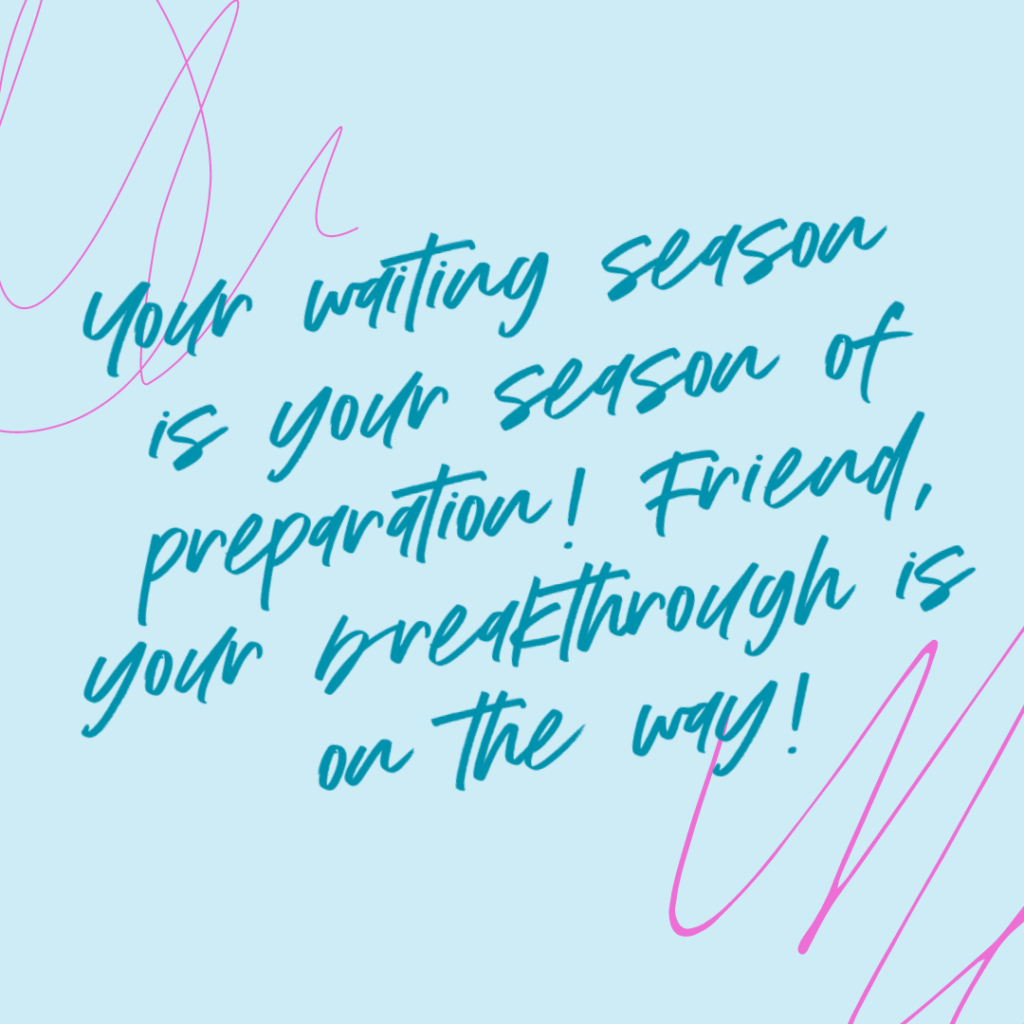 Your waiting season
is your season of
preparation! Friend,
your breakthrough is
on the way!